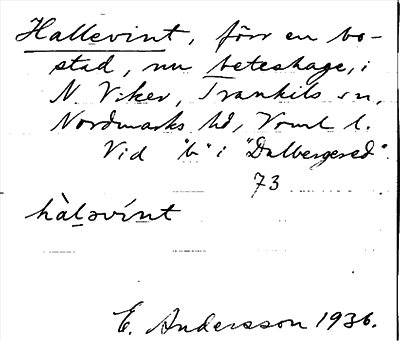 Hallevint, förr en bo-
stad, nu beteshage, i
N. Viker, Trankils sn,
Nordmarks hd, Verml l.
Vid "b" i "Dalbergsed".
73
hàləvínt
E. Andersson 1936.